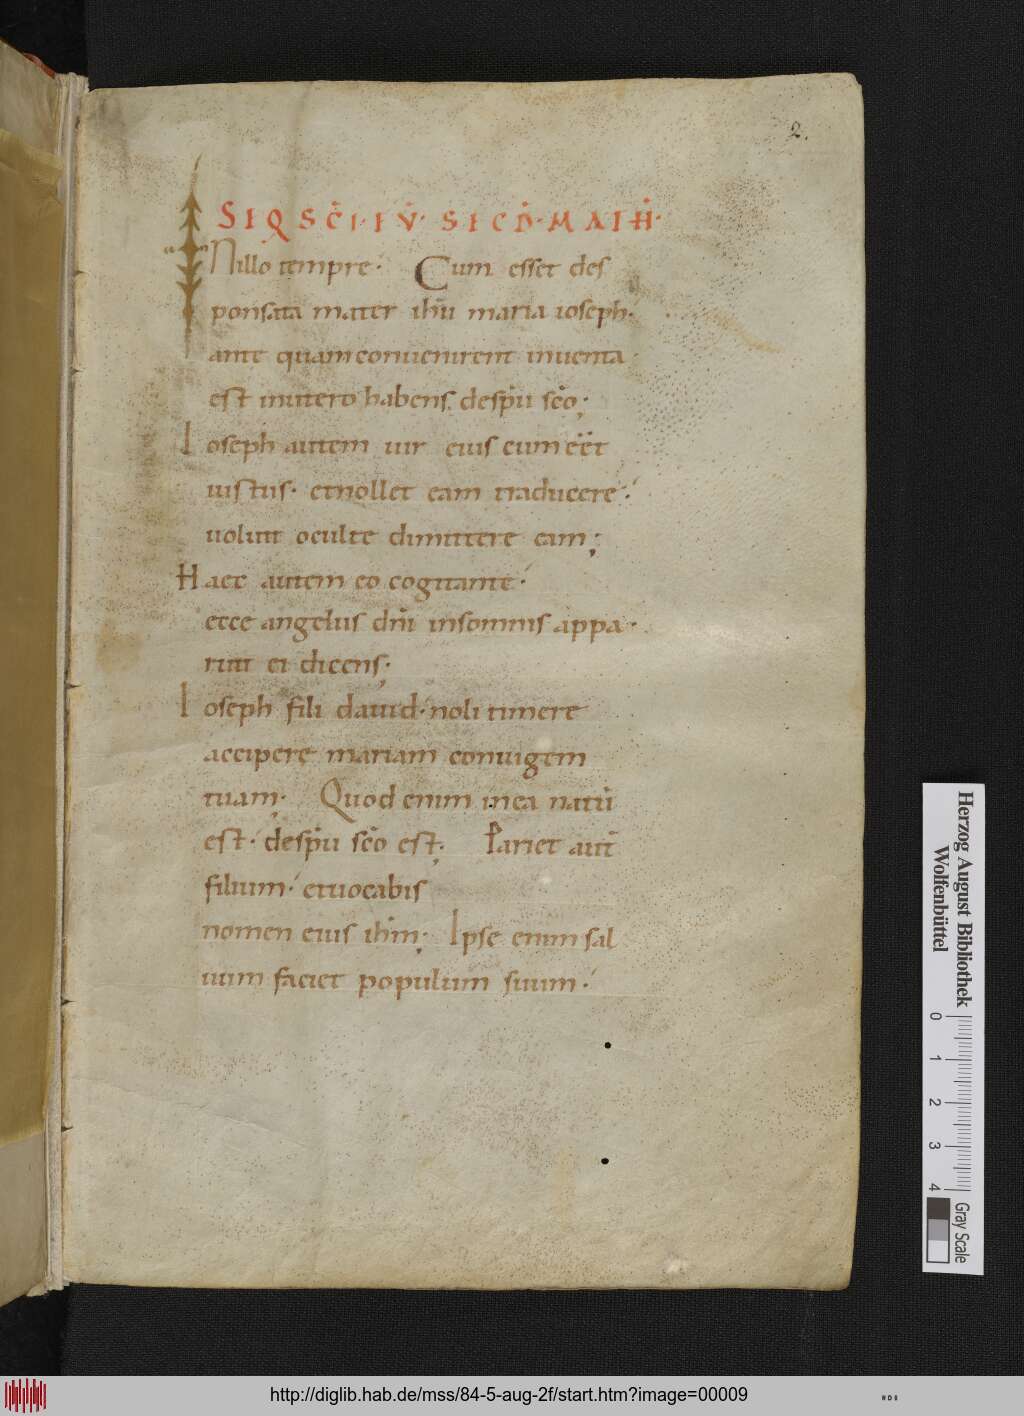 2.
SIQ SC̄I·IV̄· SICD̄·MAIH̄·
INillo tempre· Cum esset des
ponsata mater ihū maria ioseph·
ante quam convenirent inventa·
est inutero habens. despū scō;
Ioseph autem uir eius cum eēt
iustus· etnollet eam traducere·
uoluit oculte dimittere eam;
Haec autem eo cogitante·
ecce angelus dn̄i insomnis appa·
ruit ei dicens;
Ioseph fili dauid· noli timere
accipere mariam coniugem
tuam; Quod enim inea natū
est· despū scō est; Pariet aut̄
filium· etuocabis
nomen eius ihm̄; Ipse enim sal
uum faciet populum suum·
Herzog August Bibliothek
Wolfenbüttel
0 1 2 3 4
Gray Scale
http://diglib.hab.de/mss/84-5-aug-2f/start.htm?image=00009